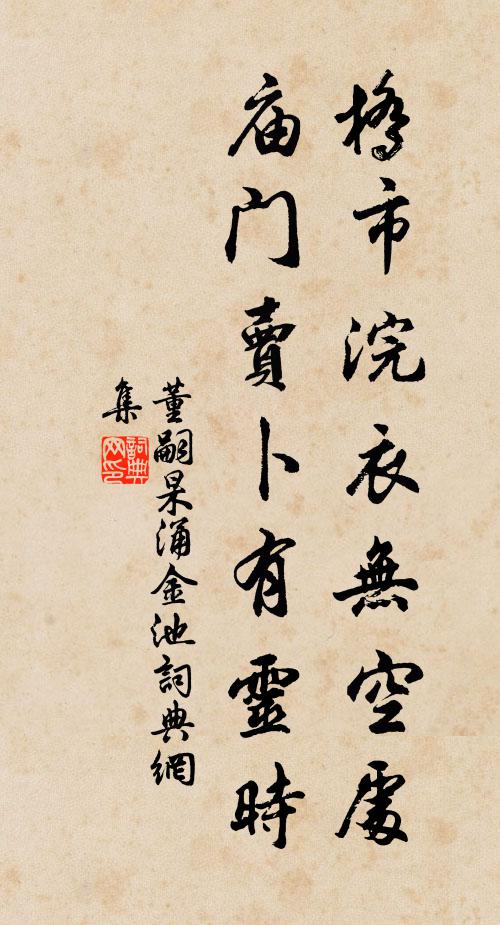 橋市浣衣無空處
庙门賣卜有靈時
董嗣杲涌金池詞典網
集
詞典网印